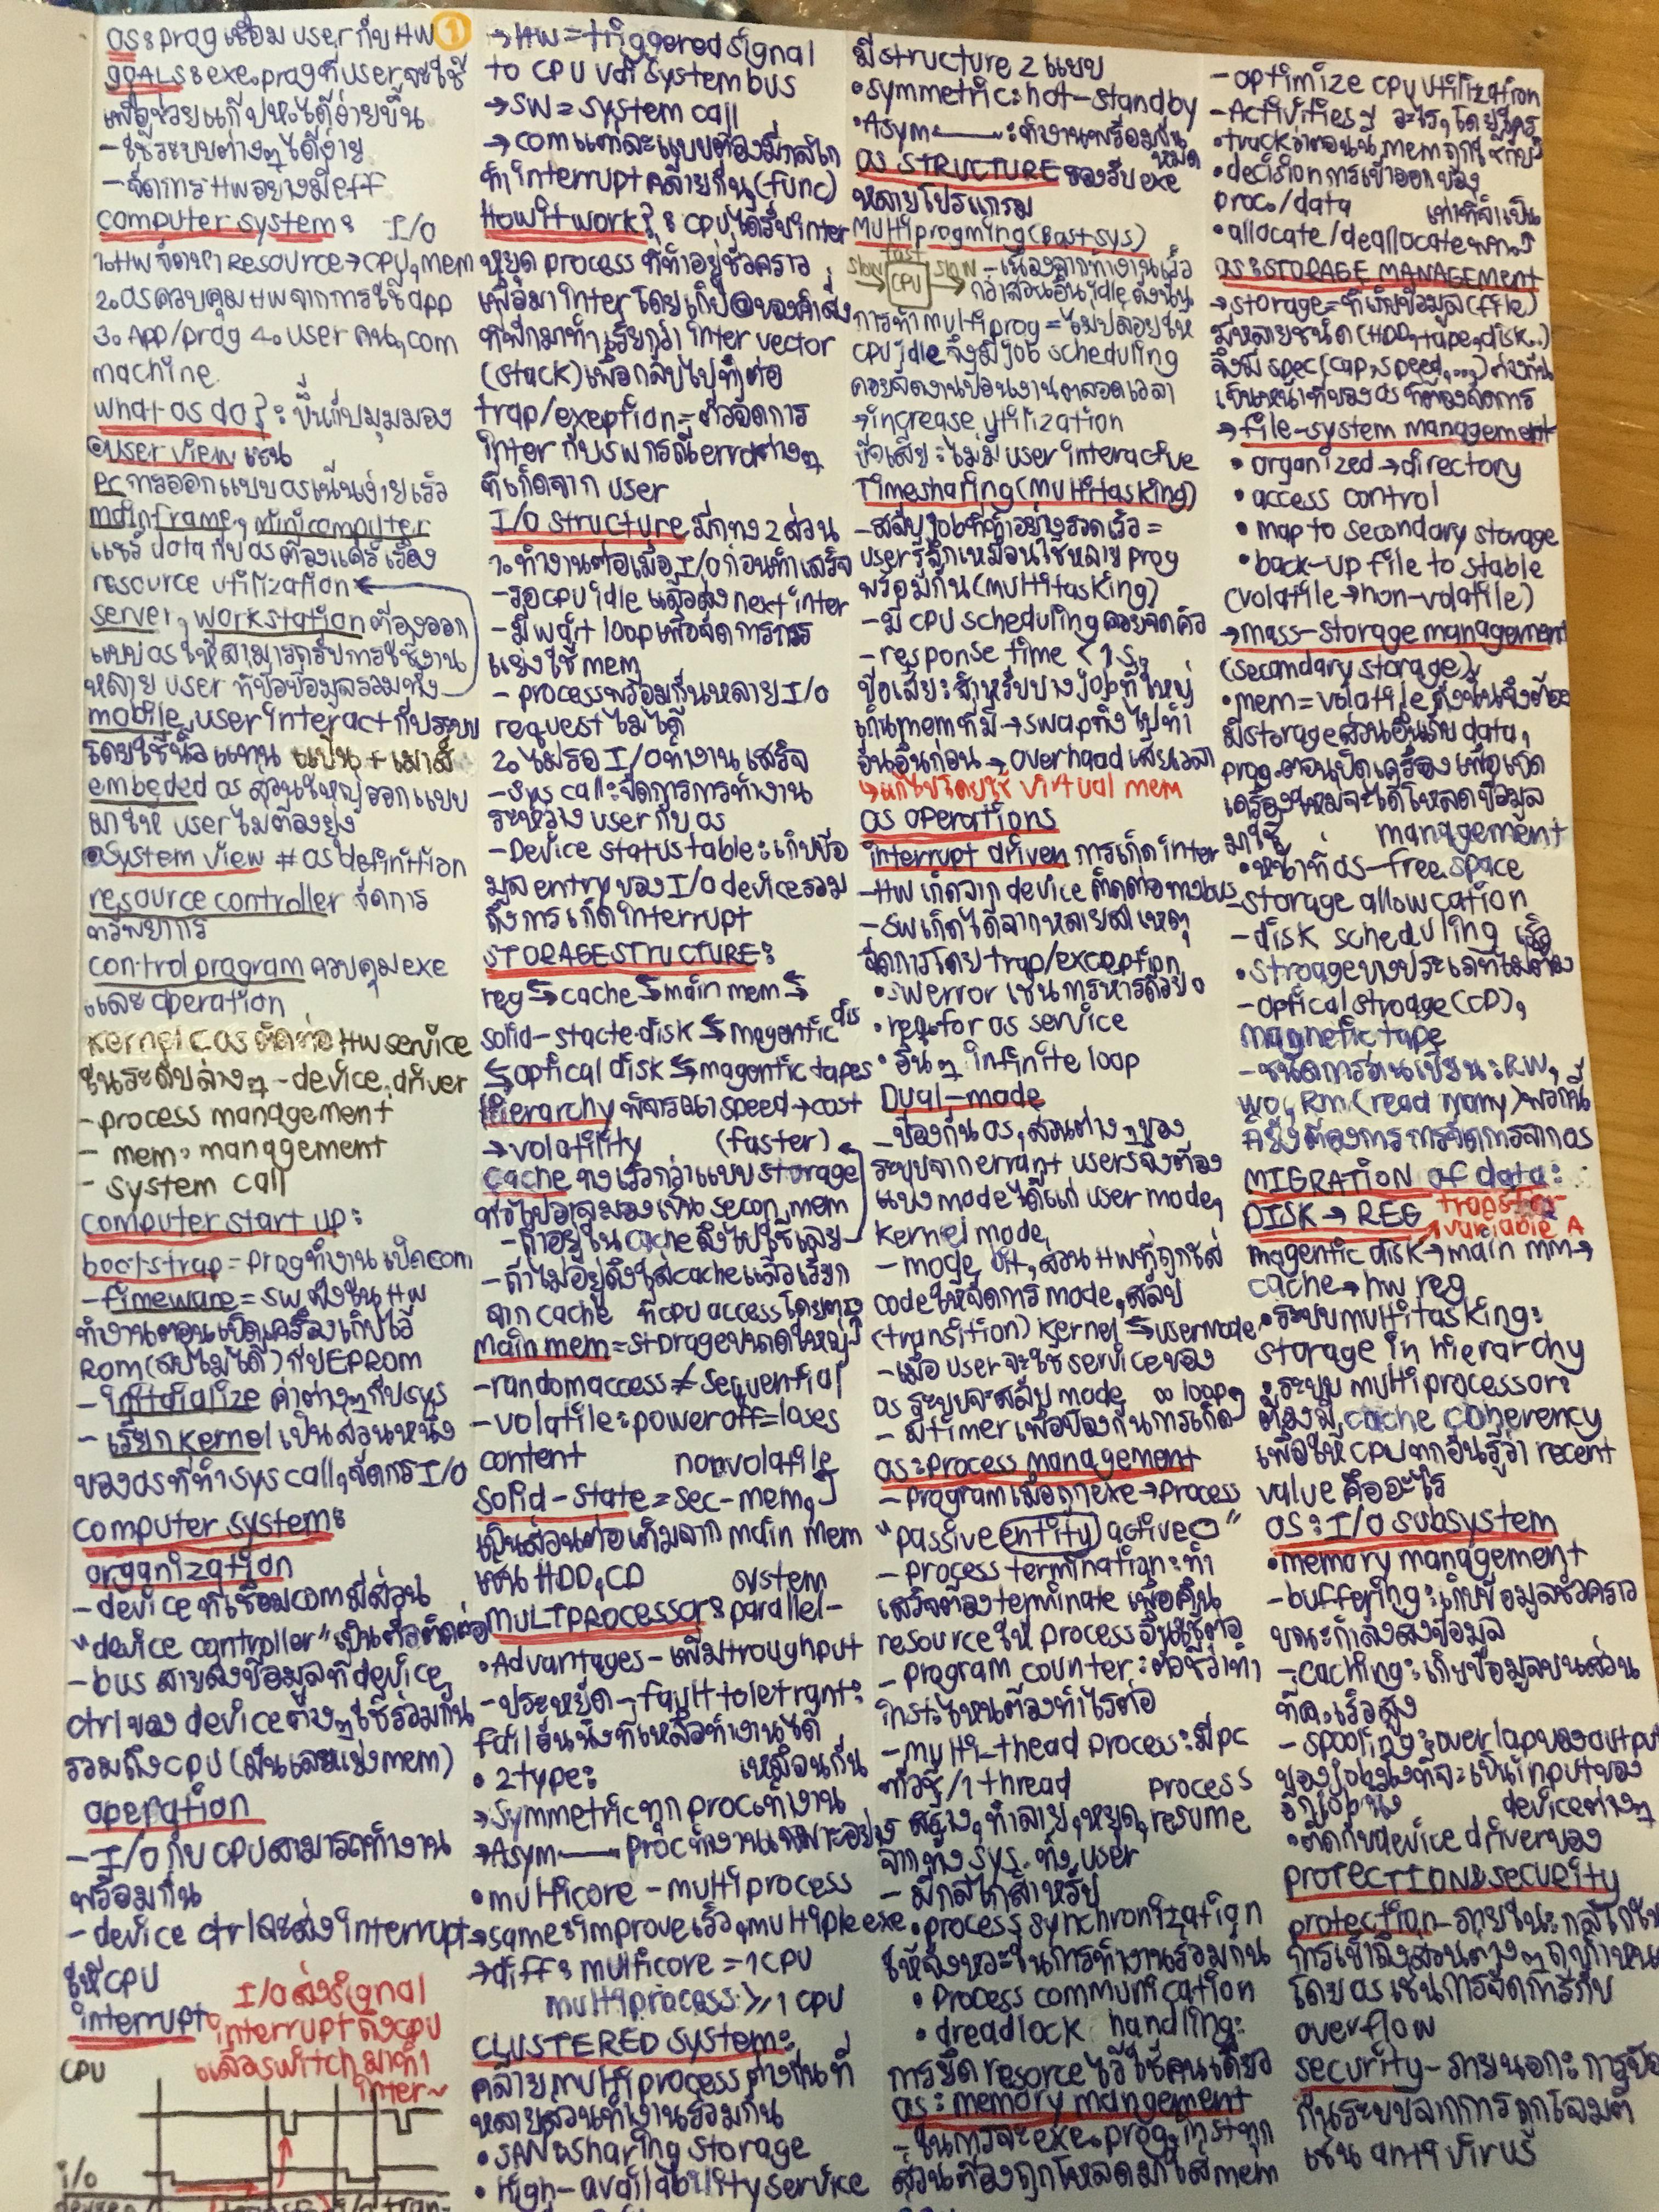 OS: prog เชื่อม user กับ HW ①
GOALS: exe. prog ที่ user จะใช้
เพื่อช่วยแก้ปห.ได้ง่ายขึ้น
- ใช้ระบบต่างๆได้ง่าย
- จัดการ HW อย่างมี eff.
computer system: I/O
1. HW จัดหา Resource → CPU, mem
2. OS ควบคุม HW จากการใช้ app
3. App/prog 4. user คน, com
machine
what os do?: ขึ้นกับมุมมอง
user view เช่น
PC การออกแบบ os เน้นง่ายเร็ว
mainframe, minicomputer
แชร์ data กับ os ต้องแคร์เรื่อง
resource utilization
server, workstation ต้องออก
แบบ os ให้สามารถรับการใช้งาน
หลาย user
mobile, user interact กับระบบ
โดยใช้นิ้วแทน แป้น + เมาส์
embeded os ส่วนใหญ่ออกแบบ
มาให้ user ไม่ต้องยุ่ง
system view # os definition
resource controller จัดการ
ทรัพยากร
control program ควบคุม exe
และ operation
kernel (os ติดต่อ HW service
ในระดับล่างๆ - device, driver
- process management
- mem. management
- system call
computer start up:
bootstrap = prog ทำงานเปิด com
- fimeware = sw ฝังใน HW
ทำงานตอนเปิดเครื่องเก็บไว้
ROM (ลบไม่ได้) กับ EPROM
- initialize ค่าต่างๆกับ sys
- เรียก kernel เป็นส่วนหนึ่ง
ของ os ที่ทำ sys call, จัดการ I/O
computer system:
organization
- device ที่เชื่อม com มีส่วน
"device controller" เป็นตัวติดต่อ
- bus สายส่งข้อมูลที่ device,
ctrl ของ device ต่างๆใช้ร่วมกัน
รวมถึง CPU (แย่ง mem)
operation
- I/O กับ CPU สามารถทำงาน
พร้อมกัน
- device ctrl จะส่ง interrupt
ให้ CPU
interrupt: I/O ส่ง signal
interrupt ถึง CPU
แล้ว switch มาทำ
inter~
CPU
i/o
→ HW = triggered signal
to CPU via system bus
→ SW = system call
→ com แต่ละแบบต้องมีกลไก
ทำ interrupt คล้ายกัน (func)
How it work?: CPU ได้รับ inter
หยุด process ที่ทำอยู่ชั่วคราว
เพื่อมา inter โดยเก็บ @ ของคำสั่ง
ที่พักมาทำ เรียกว่า inter vector
(stack) เพื่อกลับไปทำต่อ
trap/exeption = ตัวจัดการ
inter กับ sw กรณี error ต่างๆ
ที่เกิดจาก user
I/O structure มีทาง 2 ส่วน
1. ทำงานต่อเมื่อ I/O ก่อนทำเสร็จ
- รอ cpu idle แล้วส่ง next inter
- มี wait loop เพื่อจัดการการ
แย่งใช้ mem
- process พร้อมกันหลาย I/O
request ไม่ได้
2. ไม่รอ I/O ทำงานเสร็จ
- sys call: จัดการการทำงาน
ระหว่าง user กับ os
- Device status table: เก็บข้อ
มูล entry ของ I/O device รวม
ถึงการเกิด interrupt
STORAGE STRUCTURE:
reg ⇆ cache ⇆ main mem ⇆
solid-stacte disk ⇆ magentic dis
⇆ optical disk ⇆ magentic tapes
Hierarchy พิจารณา speed → cost
→ volatility (faster)
cache ทงเร็วกว่าแบบ storage
ทั่วไปอาจมองเป็น secon. mem
- ถ้าอยู่ใน cache ดึงไปใช้เลย
- ถ้าไม่อยู่ดึงใส่ cache แล้วเรียก
จาก cache ที่ CPU access โดยตรง
main mem = storage ขนาดใหญ่
- random access ≠ sequential
- volatile: power off = loses
content nonvolatile
solid-state = sec-mem,
เป็นส่วนต่อเติมจาก main mem
เช่น HDD, CD system
MULTIPROCESSOR: parallel-
• Advantages - เพิ่ม troughput
- ประหยัด - fault toletrant:
fail อันนึงที่เหลือทำงานได้
• 2 type: เหมือนกัน
→ symmetric ทุก proc. ทำงาน
→ Asym—— proc ทำงานเฉพาะอย่าง
• multicore - multiprocess
→ same: improve เร็ว, multiple exe
→ diff: multicore = 1 CPU
multiprocess ≥ 1 CPU
CLUSTERED SYSTEM:
คล้าย multiprocess ต่างกันที่
หลายส่วนทำงานร่วมกัน
• SAN: sharing storage
• High-availability service
มี structure 2 แบบ
• symmetric: hot-standby
• Asym——: ทำงานพร้อมกัน
หมด
OS STRUCTURE รองรับ exe
หลายโปรแกรม
Multiprogming (Bast sys)
slow → fast CPU → slow - เนื่องจากทำงานเร็ว
กว่าส่วนอื่น idle ดังนั้น
การทำ multiprog = ไม่ปล่อยให้
CPU idle จึงมี job scheduling
คอยจัดงานป้อนงานตลอดเวลา
→ increase utilization
ข้อเสีย: ไม่มี user interactive
Timesharing (multitasking)
- สลับ job ที่ทำอย่างรวดเร็ว =
user รู้สึกเหมือนใช้หลาย prog
พร้อมกัน (multitasking)
- มี CPU scheduling คอยจัดคิว
- response time < 1 s.
ข้อเสีย: สำหรับบาง job ที่ใหญ่
เกิน mem ที่มี → swap ทิ้งไปทำ
อันอื่นก่อน → overhaad เสียเวลา
↳ แก้ไขโดยใช้ virtual mem
OS operations
interrupt driven การเกิด inter
- HW เกิดจาก device ติดต่อทาง bus
- SW เกิดได้จากหลายสาเหตุ
จัดการโดย trap/exception
• sw error เช่นการหารด้วย 0
• req. for os service
• อื่นๆ infinite loop
Dual-mode
- ป้องกัน os, ส่วนต่างๆของ
ระบบจาก errant users จึงต้อง
แบ่ง mode ได้แก่ user mode,
kernel mode
- mode bit, ส่วน HW ที่ถูกใส่
code ให้จัดการ mode, สลับ
(transition) kernel ⇆ usermode
- เมื่อ user จะใช้ service ของ
os ระบบจะสลับ mode ∞ loop
- มี timer เพื่อป้องกันการเกิด
OS: process management
- program เมื่อถูก exe → process
"passive entity active"
- process termination: ทำ
เสร็จต้อง terminate เพื่อคืน
resource ให้ process อื่นใช้ต่อ
- program counter: ตัวชี้ว่าทำ
inst. ไหนต้องทำไรต่อ
- multi-thead process: มี pc
ตัวชี้/1 thread process
สร้าง, ทำลาย, หยุด, resume
จากทั้ง sys. ทั้ง user
- มีกลไกสำหรับ
• process synchronization
ให้จังหวะในการทำงานร่วมกัน
• process communication
• dreadlock handling:
การยึด resorce ไว้ใช้คนเดียว
OS: memory mangement
- ในการจะ exe. prog. inst ทุก
ส่วนต้องถูกโหลดมาใส่ mem
- optimize CPU utilization
- Activities อะไร, โดยใคร
• track ว่าตอนนี้ mem ถูกใช้กับ
• decision การเข้าออกของ
proc./data เท่าที่จำเป็น
• allocate/deallocate พท.
OS: STORAGE MANAGEMENT
→ storage = ที่เก็บข้อมูล (file)
มีหลายชนิด (HDD, tape, disk..)
จึงมี spec (cap, speed, ...) ต่างกัน
เป็นหน้าที่ของ os ที่ต้องจัดการ
→ file-system management
• organized → directory
• access control
• map to secondary storage
• back-up file to stable
(volatile → non-volatile)
→ mass-storage management
(secondary storage)
• mem = volatile ดังนั้นจึงต้อง
มี storage ส่วนอื่นเก็บ data,
prog. ตอนปิดเครื่อง เพื่อเปิด
เครื่องใหม่จะได้โหลดข้อมูล
มาใช้ management
• หน้าที่ os - free space
- storage allowcation
- disk scheduling
• stroage บางประเภทที่ไม่ต้อง
- optical stroage (CD),
magnetic tape
- ชนิดการอ่านเขียน: RW,
WO, RM (read many) พวกนี้
ก็ยังต้องการการจัดการจาก os
MIGRATION of data:
DISK → REG transfer variable A
magentic disk → main mm →
cache → hw reg
• ระบบ multitasking:
storage in hierarchy
• ระบบ multiprocessor:
ต้องมี cache coherency
เพื่อให้ CPU ทุกอันรู้ว่า recent
value คืออะไร
OS: I/O subsystem
• memory management
- buffering: เก็บข้อมูลชั่วคราว
ขณะกำลังส่งข้อมูล
- caching: เก็บข้อมูลบนส่วน
ที่ค.เร็วสูง
- spooling: overlap ของ output
ของ job นึงที่จะเป็น input ของ
อีก job นึง device ต่างๆ
• ติดกับ device driver ของ
PROTECTION & security
protection - ภายใน: กลไกใน
การเข้าถึงส่วนต่างๆถูกกำหน
โดย os เช่นการจัดการกับ
overflow
security - ภายนอก: การป้อ
กันระบบจากการถูกโจมตี
เช่น anti virus